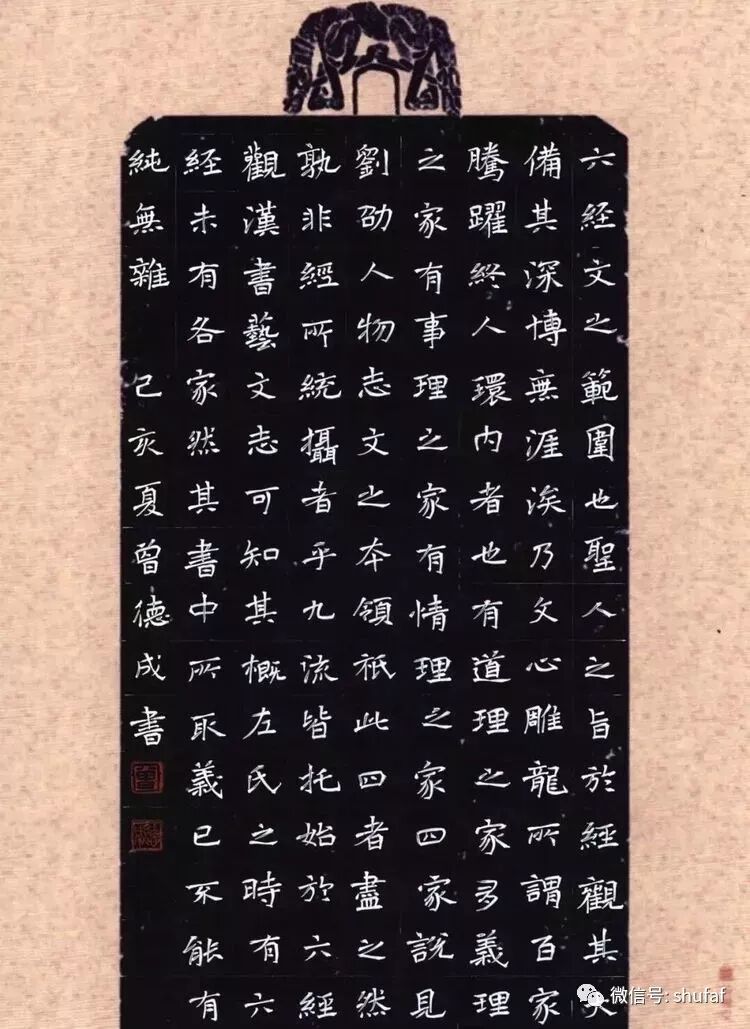 六經文之範圍也聖人之旨於經觀其大
備其深博無涯涘乃文心雕龍所謂百家
騰躍終人環內者也有道理之家有義理
之家有事理之家有情理之家四家說見
劉劭人物志文之本領祇此四者盡之然
孰非經所統攝者乎九流皆托始於六經
觀漢書藝文志可知其概左氏之時有六
經未有各家然其書中所取義已不能有
純無雜 己亥夏曾德成書
微信号: shufaf